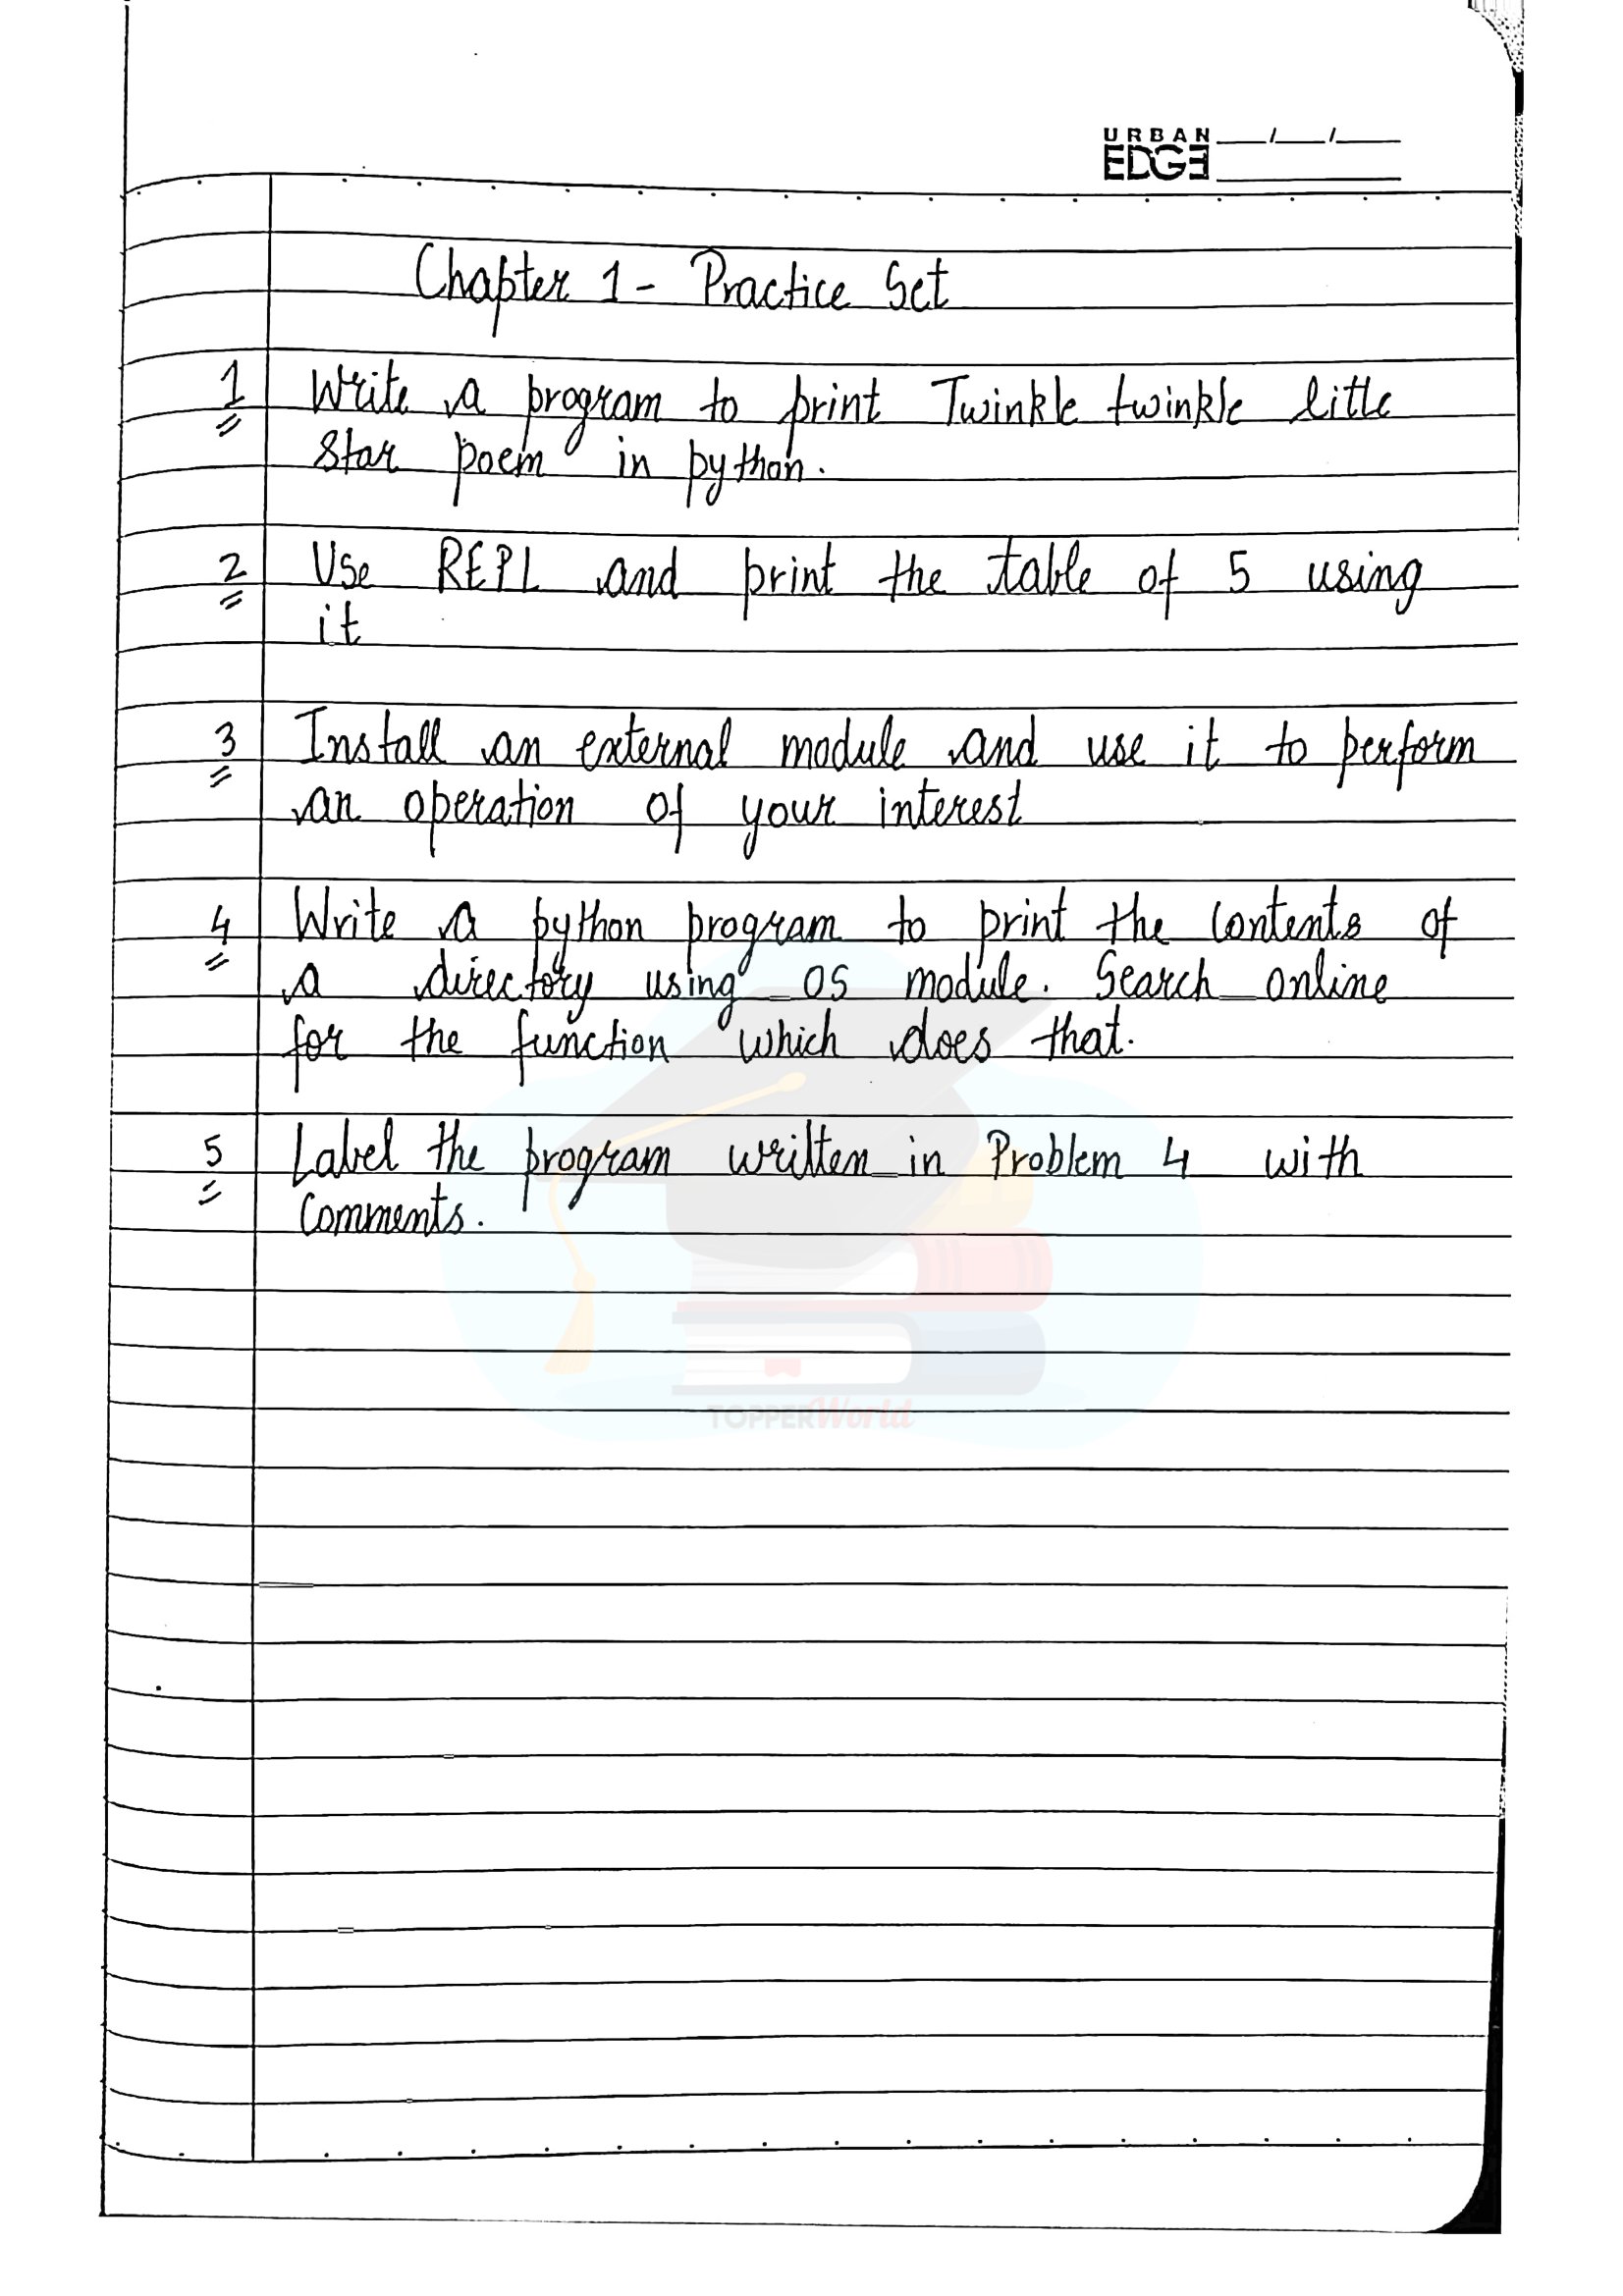 URBAN
EDGE
Chapter 1 - Practice Set
1 Write a program to print Twinkle twinkle little
star poem in python.
2 Use REPL and print the table of 5 using
it
3 Install an external module and use it to perform
an operation of your interest
4 Write a python program to print the contents of
a directory using os module. Search online
for the function which does that.
5 Label the program written in Problem 4 with
Comments.
TOPPERWorld